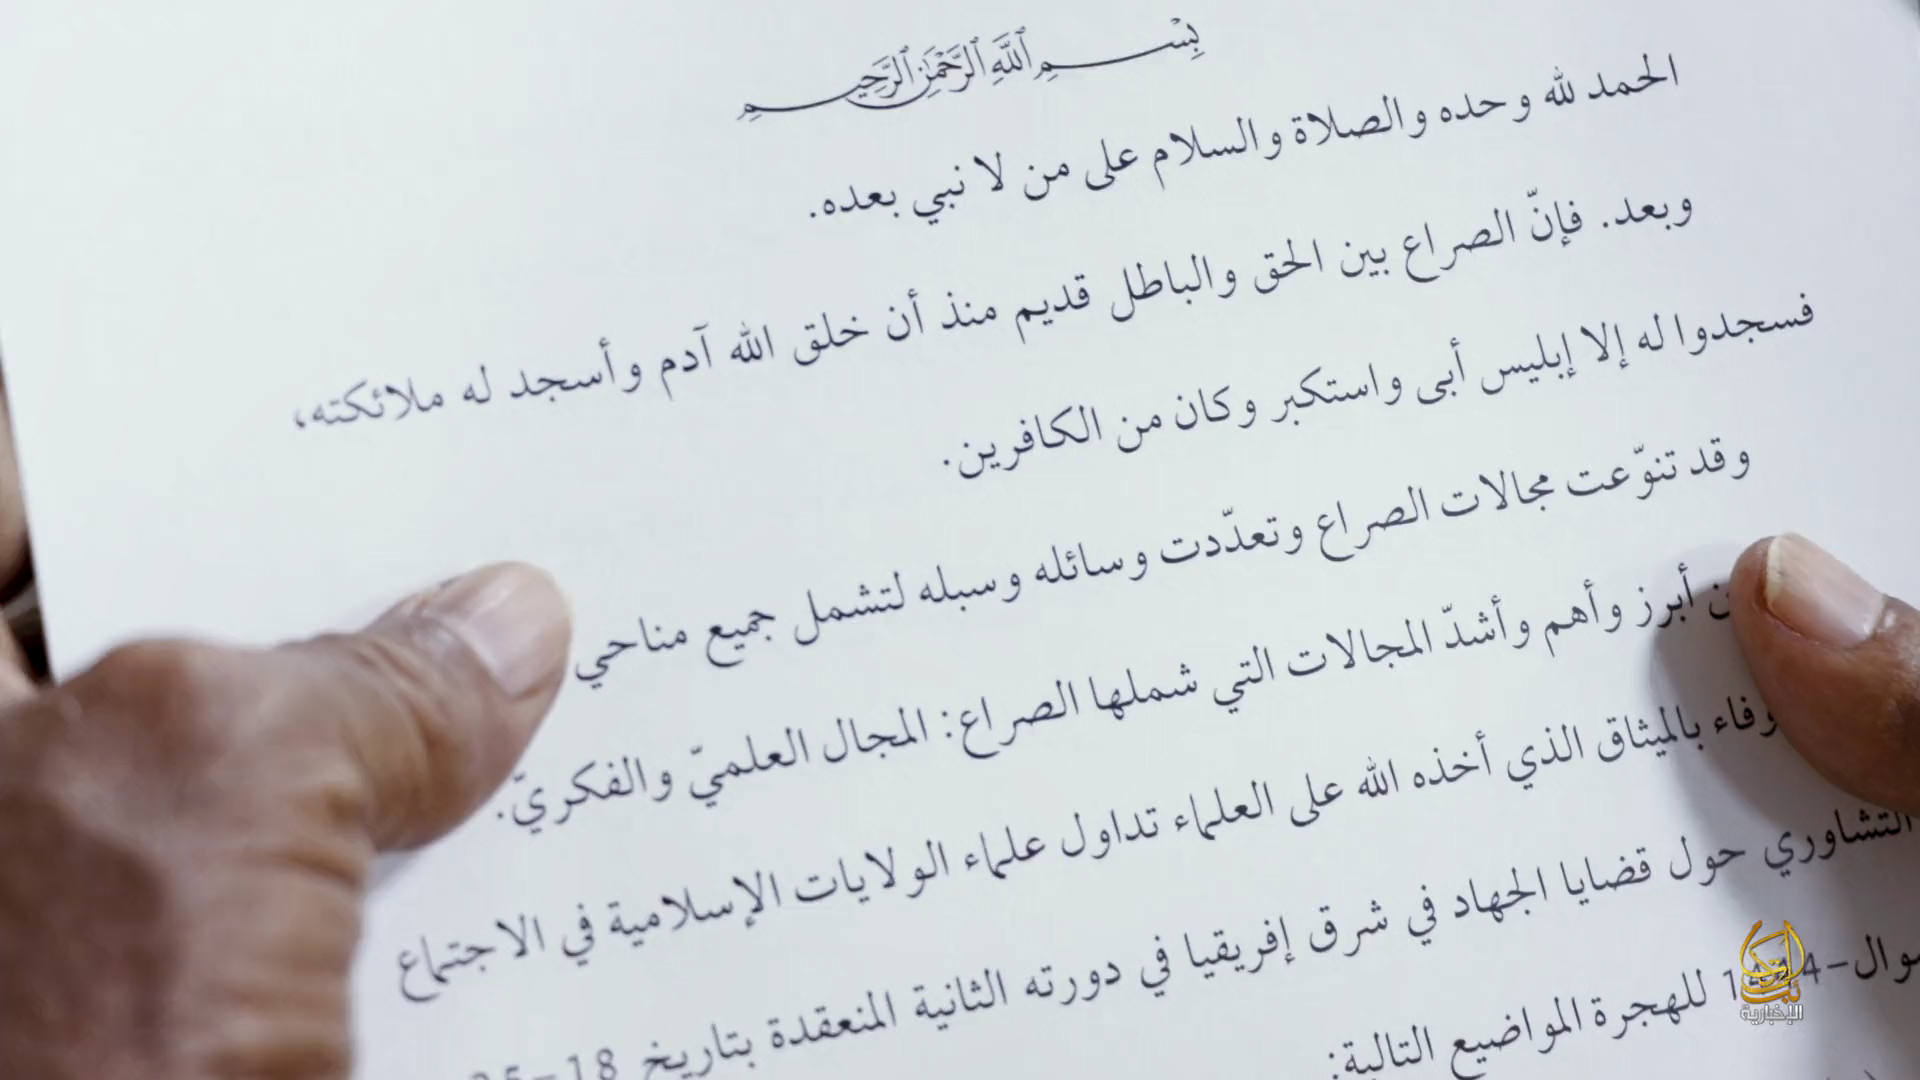 بِسْمِ ٱللَّهِ ٱلرَّحْمَٰنِ ٱلرَّحِيمِ
الحمد لله وحده والصلاة والسلام على من لا نبي بعده.
وبعد. فإنّ الصراع بين الحق والباطل قديم منذ أن خلق الله آدم وأسجد له ملائكته،
فسجدوا له إلا إبليس أبى واستكبر وكان من الكافرين.
وقد تنوّعت مجالات الصراع وتعدّدت وسائله وسبله لتشمل جميع مناحي
أبرز وأهم وأشدّ المجالات التي شملها الصراع: المجال العلميّ والفكريّ.
بالميثاق الذي أخذه الله على العلماء تداول علماء الولايات الإسلامية في الاجتماع
التشاوري حول قضايا الجهاد في شرق إفريقيا في دورته الثانية المنعقدة بتاريخ 18-25
للهجرة المواضيع التالية:
الإخبارية